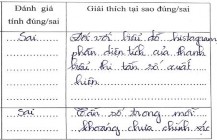 Đánh giá
tính đúng/sai
Giải thích tại sao đúng/sai
Sai
Đối với biểu đồ histogram
phần diện tích của thanh
biểu thị tần số xuất
hiện
Sai
Tần số trong mỗi
khoảng chưa chính xác